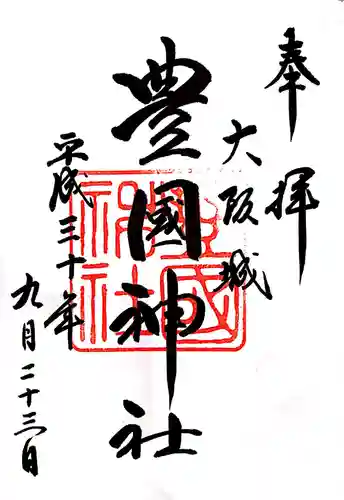 奉拝
大阪城
豊國神社
平成三十年
九月二十三日
豊國神社